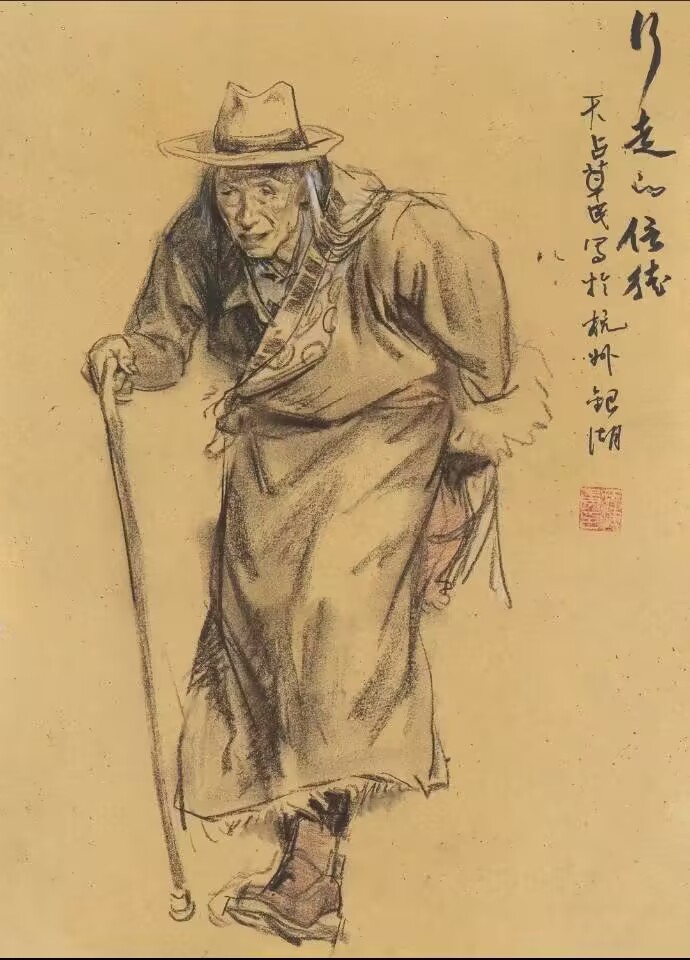 行走的信徒
天占草民写於杭州銀湖